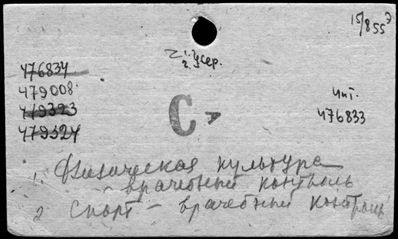 15/855
476834
479008
479323
479324
С
Инт.
476833
1. Физическая культура
врачебный контроль
2 Спорт - врачебный контроль